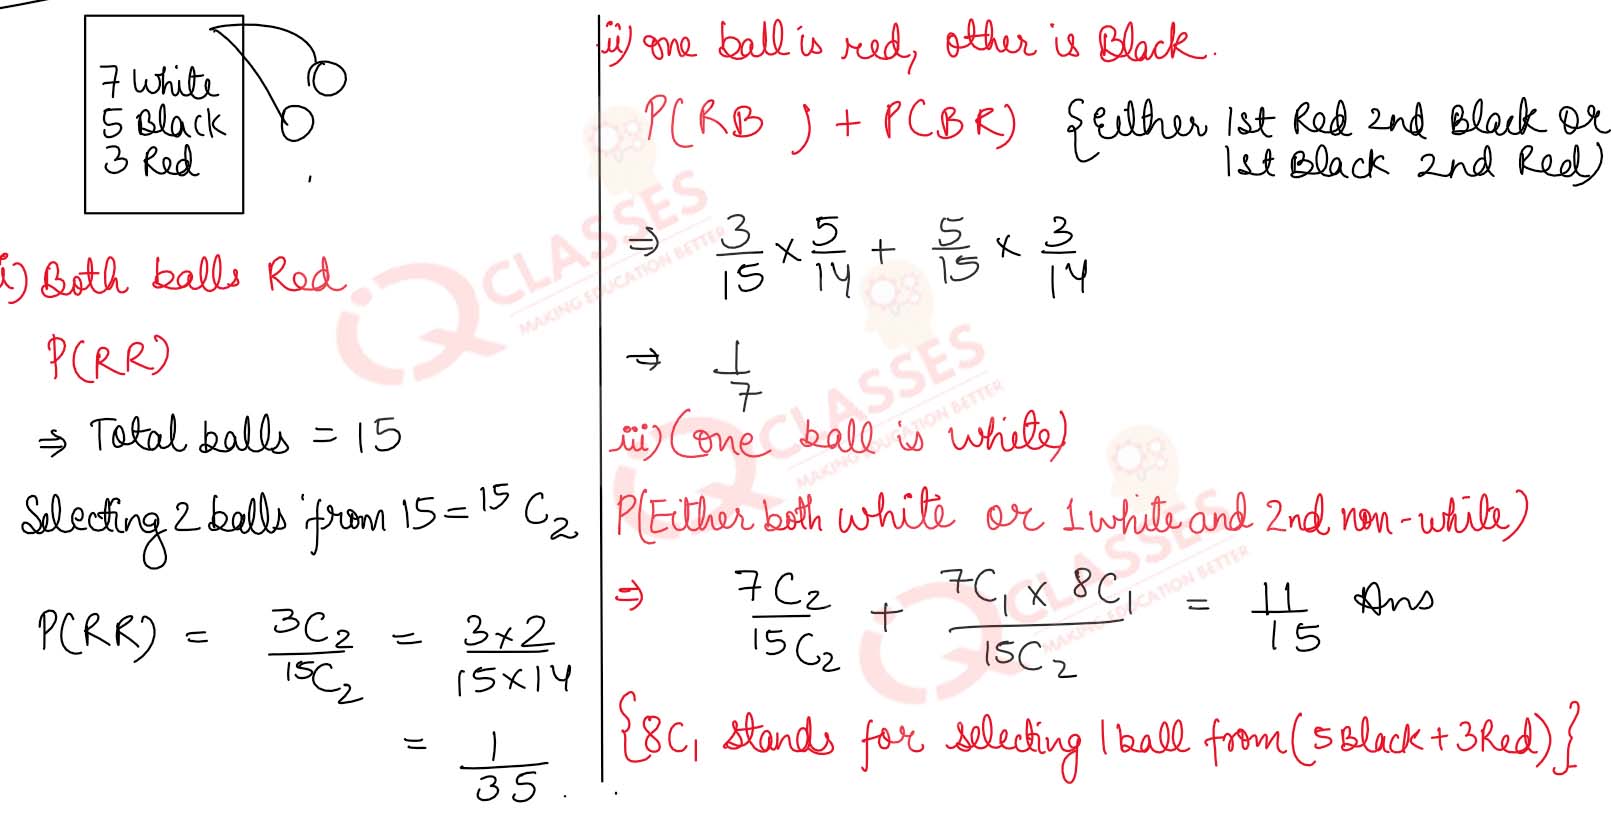 7 White
5 Black
3 Red
i) Both balls Red
P(RR)
⇒ Total balls = 15
Selecting 2 balls from 15 = 15C2
P(RR) = 3C2/15C2 = 3×2/15×14
= 1/35
ii) one ball is red, other is Black.
P(RB) + P(BR) {Either 1st Red 2nd Black or
1st Black 2nd Red)
⇒ 3/15 × 5/14 + 5/15 × 3/14
⇒ 1/7
iii) (one ball is white)
P(Either both white or 1 white and 2nd non-white)
⇒ 7C2/15C2 + 7C1 × 8C1/15C2 = 11/15 Ans
{8C1 stands for selecting 1 ball from (5 Black + 3 Red)}
IQ CLASSES
MAKING EDUCATION BETTER
IQ CLASSES
MAKING EDUCATION BETTER
IQ CLASSES
MAKING EDUCATION BETTER